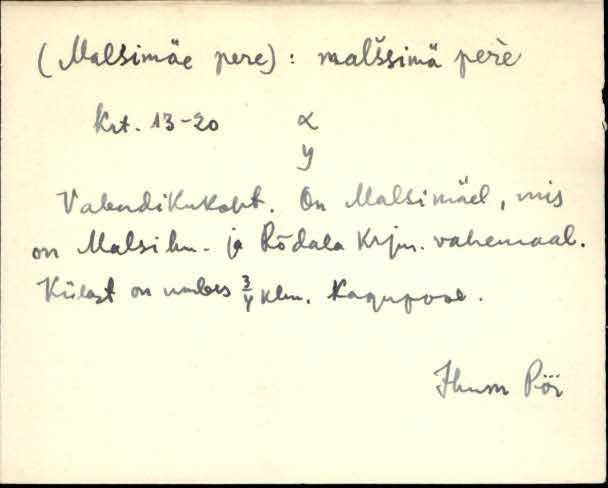 (Malsimäe pere) : malśsimä peŕe
Krt. 13-20 x
y
Vabadikukoht. On Malsimäel, mis
on Malsi kn. ja Rõdala Krjm. vahemaal.
Külast on umbes 3/4 klm. Kagupoole.